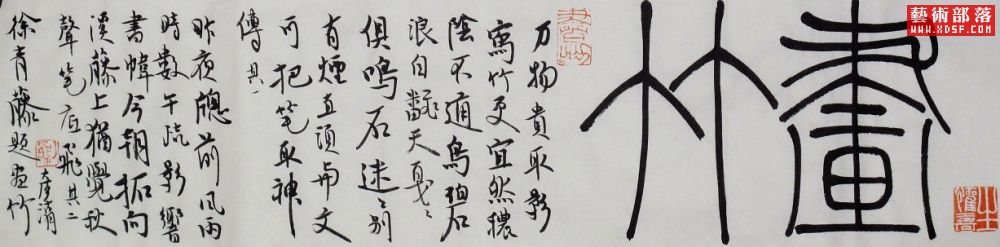 畫竹
万物貴取影
寫竹更宜然穠
陰不通鳥碧
浪自翻天戛ミ
俱鳴石迷ミ別
有煙直須与文
可把笔取神
傳其一
昨夜牕前风雨
時數竿疏影響
書幃今朝拓向
溪藤上猶覺秋
聲笔底飛其二
徐青藤題畫竹
藝術部落
www.XDSF.com